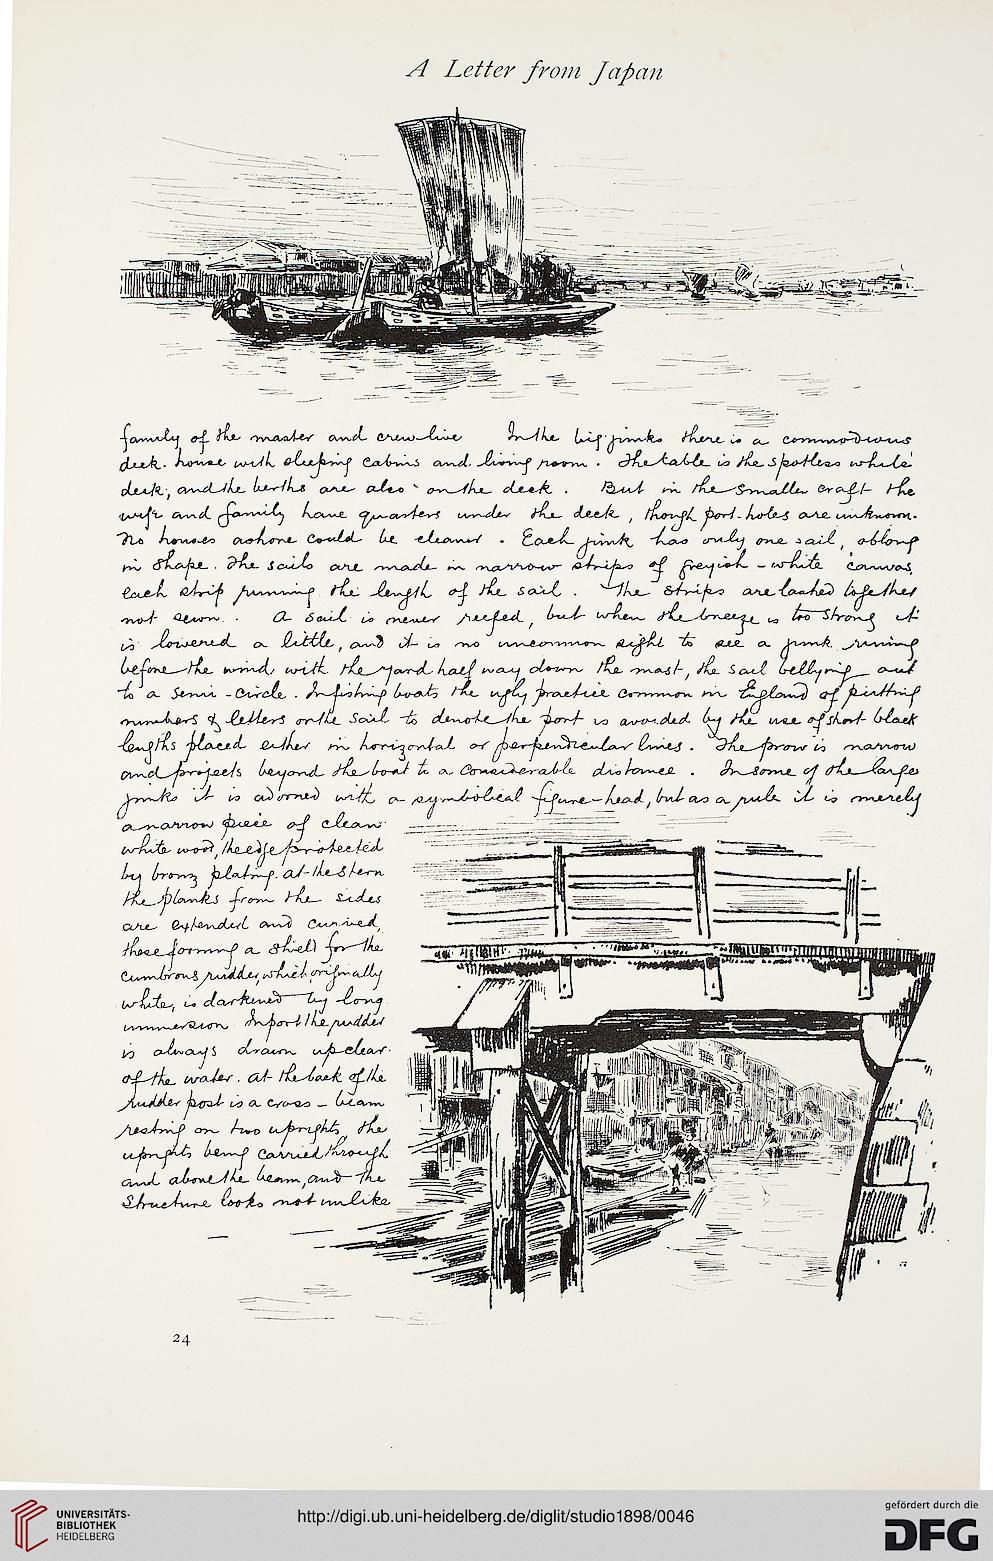 A Letter from Japan
family of the master and crew live In the big junks there is a commodious
deck-house with sleeping cabins and living room. The table is the spotless white
deck, and the berths are also on the deck. But in the smaller craft the
wife and family have quarters under the deck, though port-holes are unknown.
No houses ashore could be cleaner. Each junk has only one sail, oblong
in shape. The sails are made in narrow strips of greyish-white canvas,
each strip running the length of the sail. The strips are lashed together
not sewn. A sail is never reefed, but when the breeze is too strong it
is lowered a little, and it is no uncommon sight to see a junk running
before the wind with the yard half way down the mast, the sail bellying out
to a semi-circle. In fishing boats the ugly practice common in England of putting
numbers & letters on the sail to denote the port is avoided by the use of short black
lengths placed either in horizontal or perpendicular lines. The prow is narrow
and projects beyond the boat to a considerable distance. In some of the large
junks it is adorned with a symbolical figure-head, but as a rule it is merely
a narrow piece of clean
white wood, the edge protected
by bronze plating. At the stern
the planks from the sides
are extended and curved,
these forming a shield for the
cumbrous rudder, which, originally
white, is darkened by long
immersion. In port the rudder
is always drawn up clear
of the water. At the back of the
rudder post is a cross-beam
resting on two uprights, the
uprights being carried through
and above the beam, and the
structure looks not unlike
24
UNIVERSITÄTS-
BIBLIOTHEK
HEIDELBERG
http://digi.ub.uni-heidelberg.de/diglit/studio1898/0046
gefördert durch die
DFG